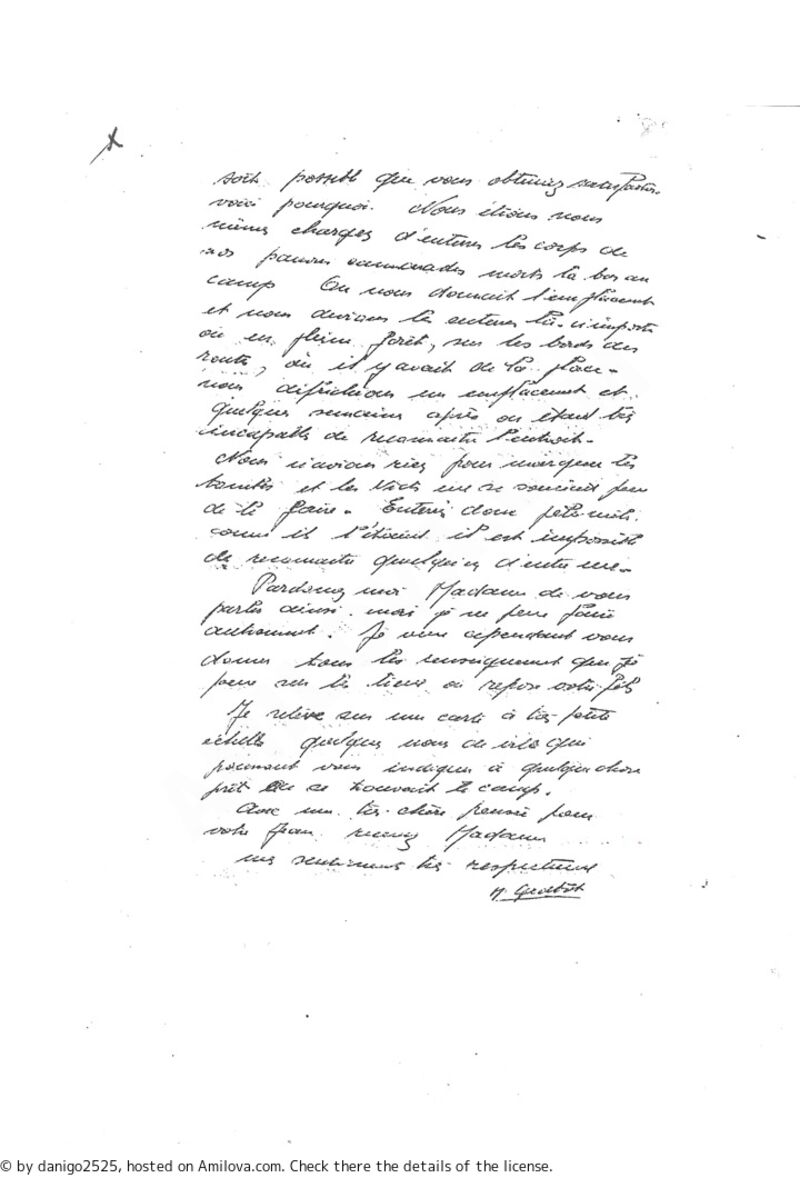 soit possible que vous obteniez satisfaction.
voici pourquoi. Nous étions nous
mêmes chargés d'enterrer les corps de
nos pauvres camarades morts là bas au
camp On nous donnait l'emplacement
et nous devions les enterrer là. n'importe
où en pleine forêt, sur les bords des
routes, où il y avait de la place -
nous défrichions un emplacement et
quelques semaines après on était très
incapables de reconnaître l'endroit -
Nous n'avions rien pour marquer les
tombes et les se souciaient peu
de le faire - Enterrés donc pêle-mêle.
comme ils l'étaient il est impossible
de reconnaître quelqu'un d'entre eux -
Pardonnez moi Madame de vous
parler ainsi. mais je ne peux faire
autrement. Je veux cependant vous
donner tous les renseignements que je
peux sur les lieux où repose votre fils
Je relève sur une carte à très petite
échelle quelques noms de ville qui
pourront vous indiquer à quelque chose
prêt où se trouvait le camp.
Avec une très chère pensée pour
votre Jean recevez Madame
mes sentiments très respectueux
© by danigo2525, hosted on Amilova.com. Check there the details of the license.